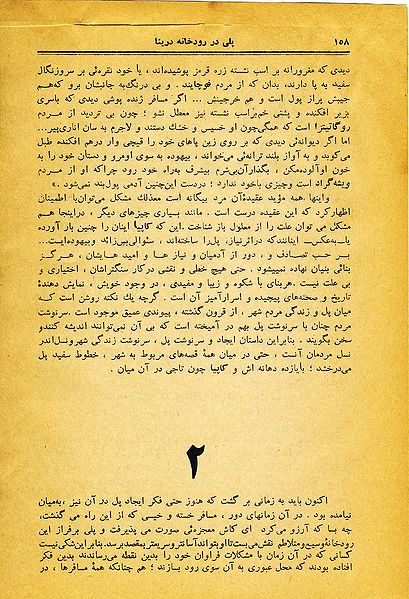 ۱۵۸
پلی در رودخانه درینا
دیدی که مغرورانه بر اسب نشسته زره قرمز پوشیده‌اند ، یا خود نقره‌ئی بر سر و زنگال
سفید به پا دارند، بدان که از مردم فوچایند . و بی درنگ به جانبشان برو که هم
جیبش پراز پول است و هم خرجینش ... اگر مسافر ژنده پوشی دیدی که باسری
بزیر افکنده و پشتی خم براسب نشسته نیز معطل نشو ؛ چون بی تردید از مردم
روگاتیتزا است که همگی‌چون او خسیس و خشك دستند و لاجرم به سان اناری‌پیر...
اما اگر دیوانه‌ئی دیدی که بر روی زین پاهای خود را قیچی وار درهم افکنده طبل
می‌کوبد و به آواز بلند ترانه‌ئی می‌خواند ، بیهوده به سوی او مرو و دستان خود را به
خون او آلوده مکن ، بگذار آن بی‌شرم بیشرف به راه خود رود چراکه او از مردم
ویشه‌گراد است وچیزی باخود ندارد ؛ درست این‌چنین آدمی پول‌بند نمی‌شود .»
واینها همه مؤید عقیدهٔ آن مرد بیگانه است معذلك مشکل می‌توان با اطمینان
اظهار کرد که این عقیده درست است . مانند بسیاری چیزهای دیگر ، دراینجا هم
مشکل می توان علت را از معلول باز شناخت .این که کاپیا اینان را چنین بار آورده
یا...به‌عکس... اینانند که دراثر نیاز، پل‌را ساخته‌اند ، سئوالی بی‌زائد و بیهوده‌ایست...
بر حسب تصادف و ، دور از آدمیان و نیاز ها و امید هایشان ، هرگز
بنائی بنیان نهاده نمیشود . حتی هیچ خطی و نقشی در کار سنگتراشان ، اختیاری و
بی علت نیست .هربنای با شکوه و زیبا و مفیدی ، در وجود خویش ، نمایش دهندهٔ
تاریخ و صحنه‌های پیچیده و اسرارآمیز آن است . گرچه یك نکته روشن است که
میان پل و زندگی مردم شهر ، از قرون گذشته ، پیوندی عمیق موجود است .سرنوشت
مردم چنان با سرنوشت پل بهم در آمیخته است که بی آن نمی‌توانند اندیشه کنند و
سخن بگویند . بنابراین داستان ایجاد و سرنوشت پل ، سرنوشت زندگی شهر و نسل‌اندر
نسل مردمان آنست ، حتی در میان همهٔ قصه‌های مربوط به شهر ، خطوط سفید پل
می‌درخشد ؛ با یازده دهانه اش و کاپیا چون تاجی در آن میان .
۲
اکنون باید به زمانی بر گشت که هنوز حتی فکر ایجاد پل در آن نیز ، به‌میان
نیامده بود . در آن زمانهای دور ، مسافر خسته و خیسی که از این راه می گذشت،
چه بسا که آرزو می‌کرد ای کاش معجزه‌ئی صورت می پذیرفت و پلی برفراز این
رودخانهٔ وسیع و متلاطم نقش می‌بست تا او بتواند آسانتر و سریعتر بمقصد برسد. بنابر این‌شکی نیست
کسانی که در آن زمان با مشکلات فراوان خود را بدین نقطه می‌رساندند بدین فکر
افتاده بودند که محل عبوری به آن سوی رود بسازند ؛ هم چنانکه همهٔ مسافرها ، در